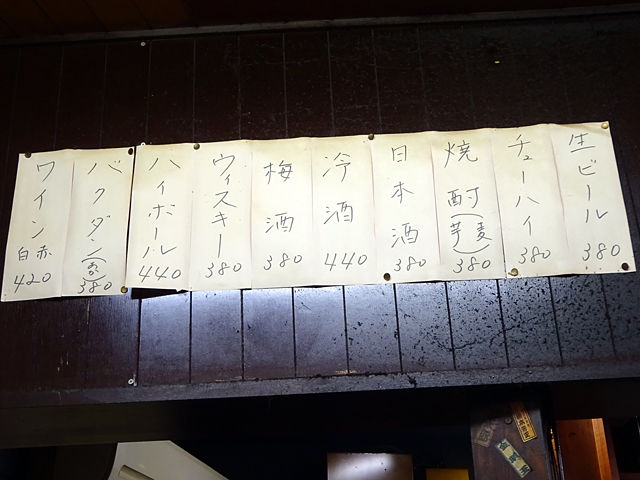 生ビール 380
チューハイ 380
焼酎(芋麦) 380
日本酒 380
冷酒 440
梅酒 380
ウィスキー 380
ハイボール 440
バクダン 380
ワイン 赤白 420